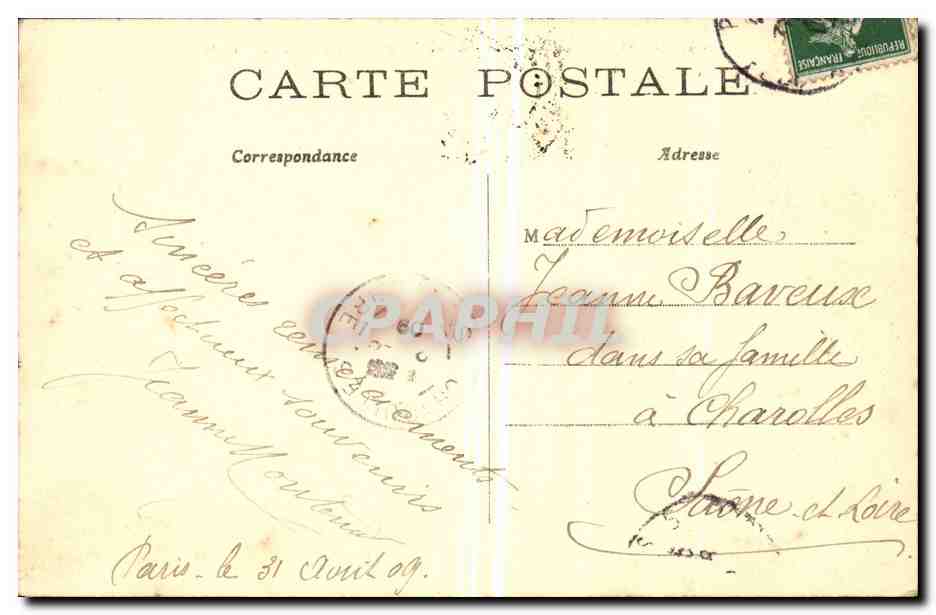 CARTE POSTALE
Correspondance
Adresse
REPUBLIQUE FRANÇAISE
Sincères remerciements
et affectueux souvenirs
Jeanne
Paris le 31 Avril 09.
Mademoiselle
Jeanne Baveux
dans sa famille
à Charolles
Saône et Loire
CPAPHIL